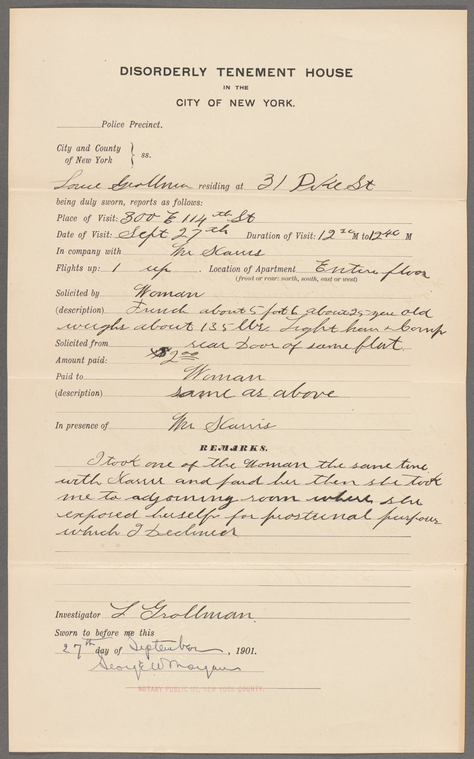 DISORDERLY TENEMENT HOUSE
IN THE
CITY OF NEW YORK.
Police Precinct.
City and County
of New York } ss.
Louie Grollman residing at 31 Pike St
being duly sworn, reports as follows:
Place of Visit: 300 E 114th St
Date of Visit: Sept 27th Duration of Visit: 12 30 M to 12 40 M
In company with Mr
Flights up: 1 up . Location of Apartment Entire floor
(front or rear: north, south, east or west)
Solicited by Woman
(description) French about 5 foot 6 about 25 year old
weighs about 135 lbr. Light hair & Comp
Solicited from rear Door of same flat
Amount paid: $2.00
Paid to Woman
(description) same as above
In presence of Mr
REMARKS.
I took one of the Woman the same time
with and paid her then she took
me to adjoining room where she
exposed herself for purpose
which I Declined
Investigator L Grollman
Sworn to before me this
27th day of September , 1901.
George W Morgan
NOTARY PUBLIC NEW YORK COUNTY.